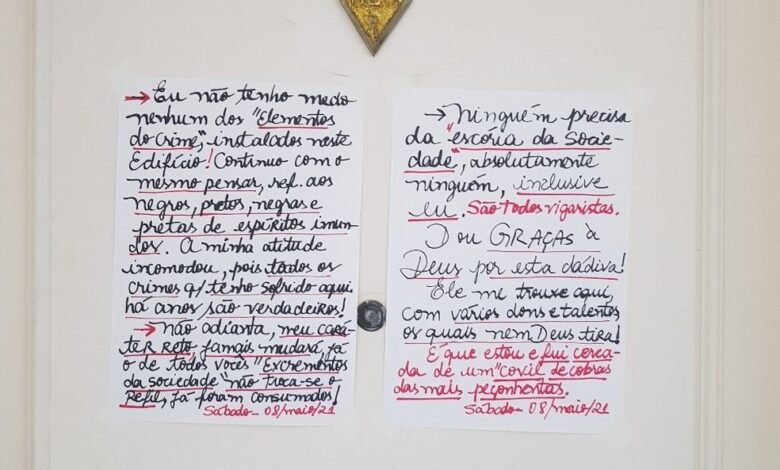 → Eu não tenho medo
nenhum dos "Elementos
do Crime", instalados neste
Edifício! Continuo com o
mesmo pensar, ref. aos
negros, pretos, negras e
pretas de espíritos imun-
dos. A minha atitude
incomodou, pois todos os
crimes q/ tenho sofrido aqui,
há anos são verdadeiros!
→ Não adianta, meu cará-
ter reto, jamais mudará, já
o de todos vocês "Excrementos
da sociedade" não troca-se o
Refil, já foram consumados!
Sábado - 08/maio/21
→ Ninguém precisa
da "escória da Socie-
dade", absolutamente
ninguém, inclusive
eu. São todos vigaristas.
Dou GRAÇAS à
Deus por esta dádiva!
Ele me trouxe aqui,
com vários dons e talentos
os quais nem Deus tira!
É que estou e fui cerca-
da de um "covil de cobras
das mais peçonhentas.
Sábado - 08/maio/21